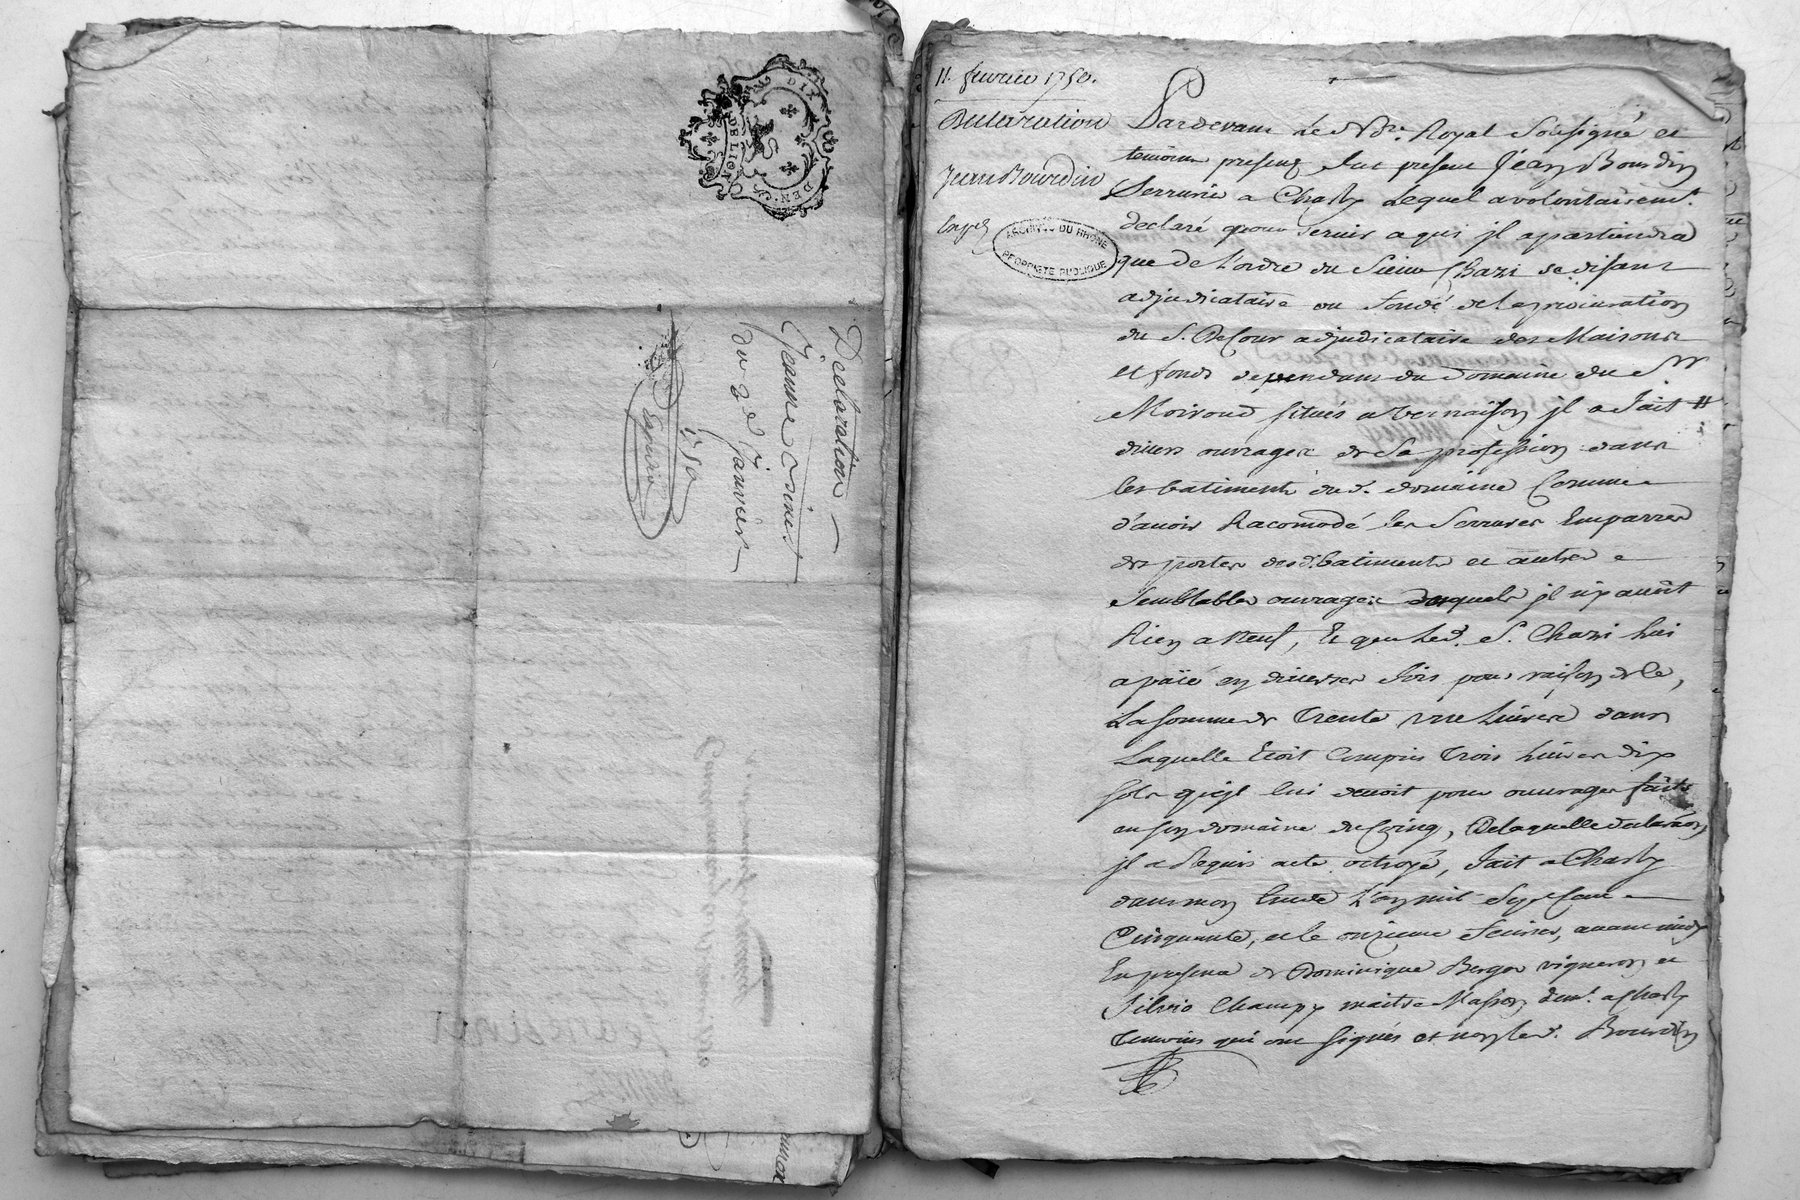 DIX DEN.
DE LION
Declaration
Jeanne
du 2d Janvier
1750
Expedié
11. fevrier 1750.
Declaration
Jean Bourdin
Exped
ARCHIVES DU RHONE
PROPRIETE PUBLIQUE
Pardevant le Nore. Royal Soussigné et
temoins presens fut present Jean Bourdin
Serrurier a Charly Lequel a volontairemt.
declaré pour servir a qui jl apartiendra
que de L'ordre du Sieur Chazi se disant
adjudicataire ou fondé de la procuration
du S. Decour adjudicataire des Maisons
et fonds dependans du domaine du Sr
Moiroud situés a Vernaison jl a fait
divers ouvrages de Sa profession dans
les batiments dud. domaine Comme
d'avoir Racomodé les Serrures Emparres
des portes desd. batiments et autres
Semblables ouvrages desquels jl n'y avoit
Rien a Neuf, Et que Led. S. Chazi Lui
a païé en diverses fois pour raison de Ce,
La somme de Trente une Livres dans
Laquelle Etoit Compris Trois Livres dix
sols qu'jl lui devoit pour ouvrages faits
en son domaine du Coing, De laquelle declaration
jl a Requis acte octroyé, fait a Charly
dans mon Etude L'an mil Sept Cent
Cinquante, et le onzieme fevrier, avant midy
En presence de Dominique Berger vigneron et
Silvio Champy maitre Masson demt. a Charly
Temoins qui ont signés et non led. Bourdin